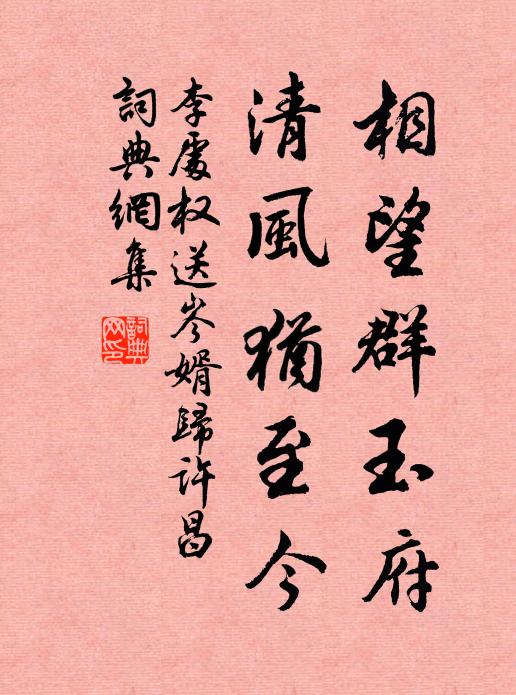 相望群玉府
清風猶至今
李處权送岑婿歸許昌
詞典網集
詞典网印